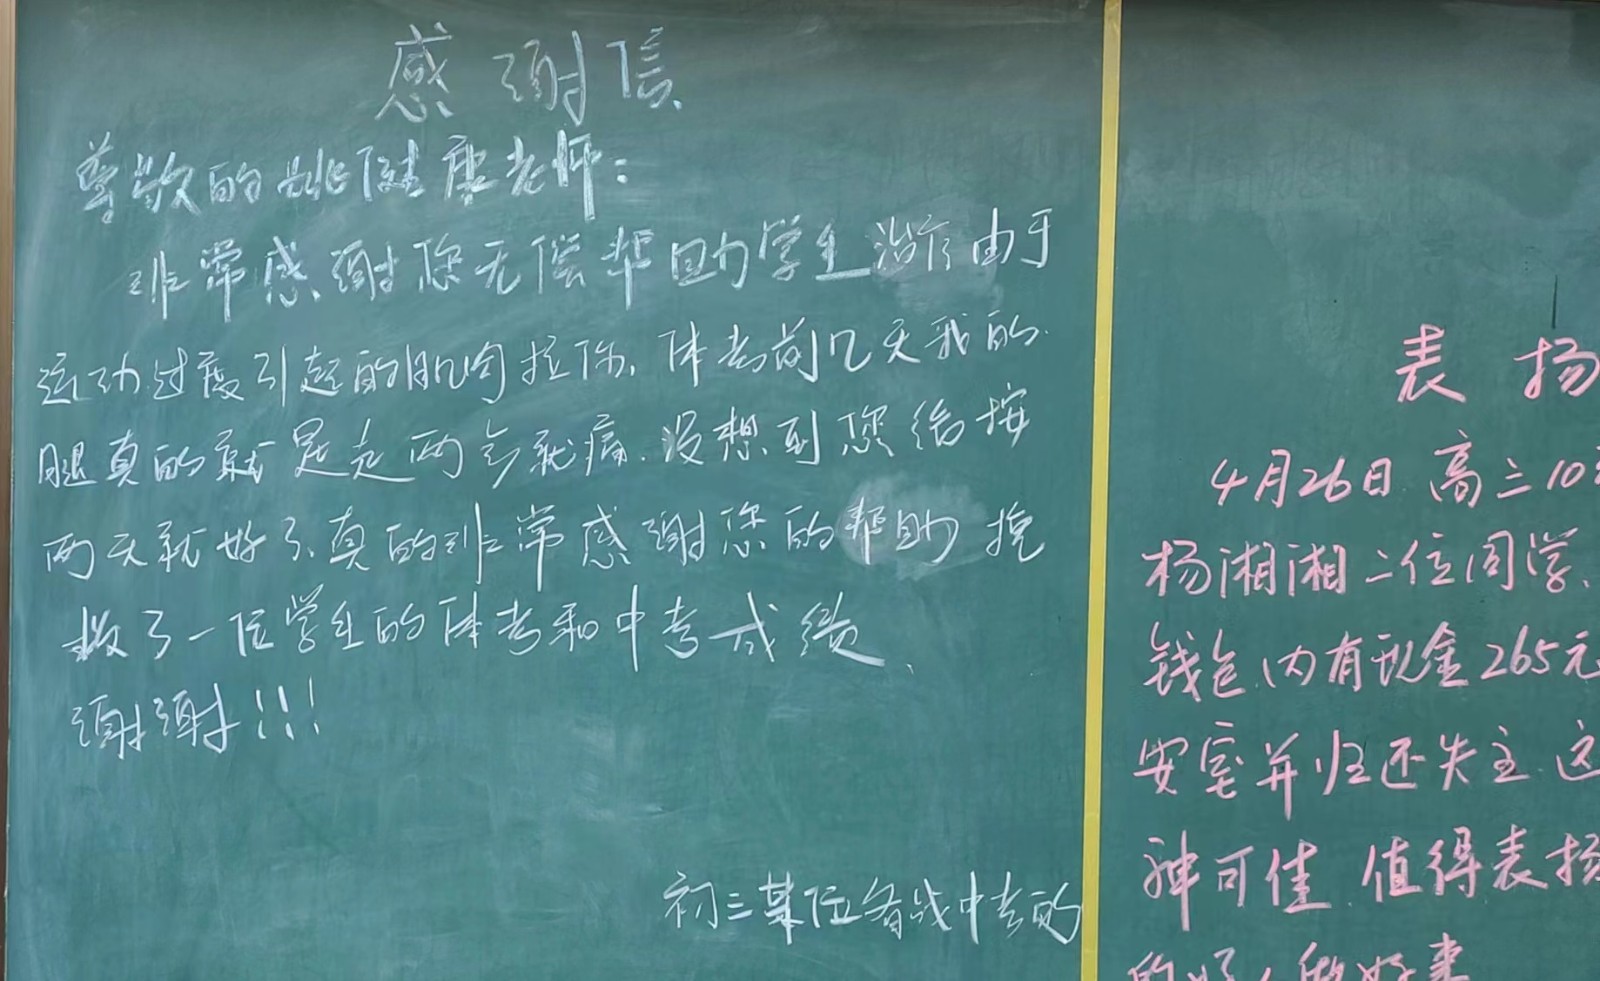 感谢信
尊敬的姚健康老师：
非常感谢您无偿帮助学生治疗由于
运动过度引起的肌肉拉伤、体考前几天我的
腿真的就是走两步就痛.没想到您给按
两天就好了、真的非常感谢您的帮助 挽
救了一位学生的体考和中考成绩、
谢谢!!!
初三某位备战中考的
表扬
4月26日 高三10
杨湘湘二位同学、
钱包、内有现金265元
安室并归还失主.这
神可佳.值得表扬
的好人做好事